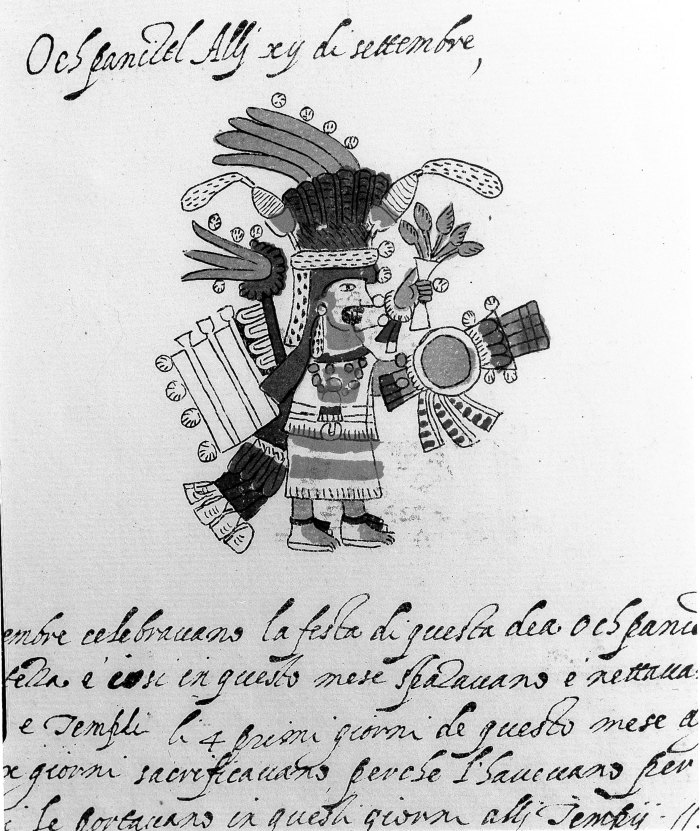 Ochpaniztl Alli xij di settembre,
embre celebrauano la festa di questa dea Ochpani
e cosi in questo mese spazauano e nettaua
e Tempii li 4 primi giorni de questo mese
giorni sacrificauano, perche l'haueuano per
le portauano in questi giorni alli Tempij.